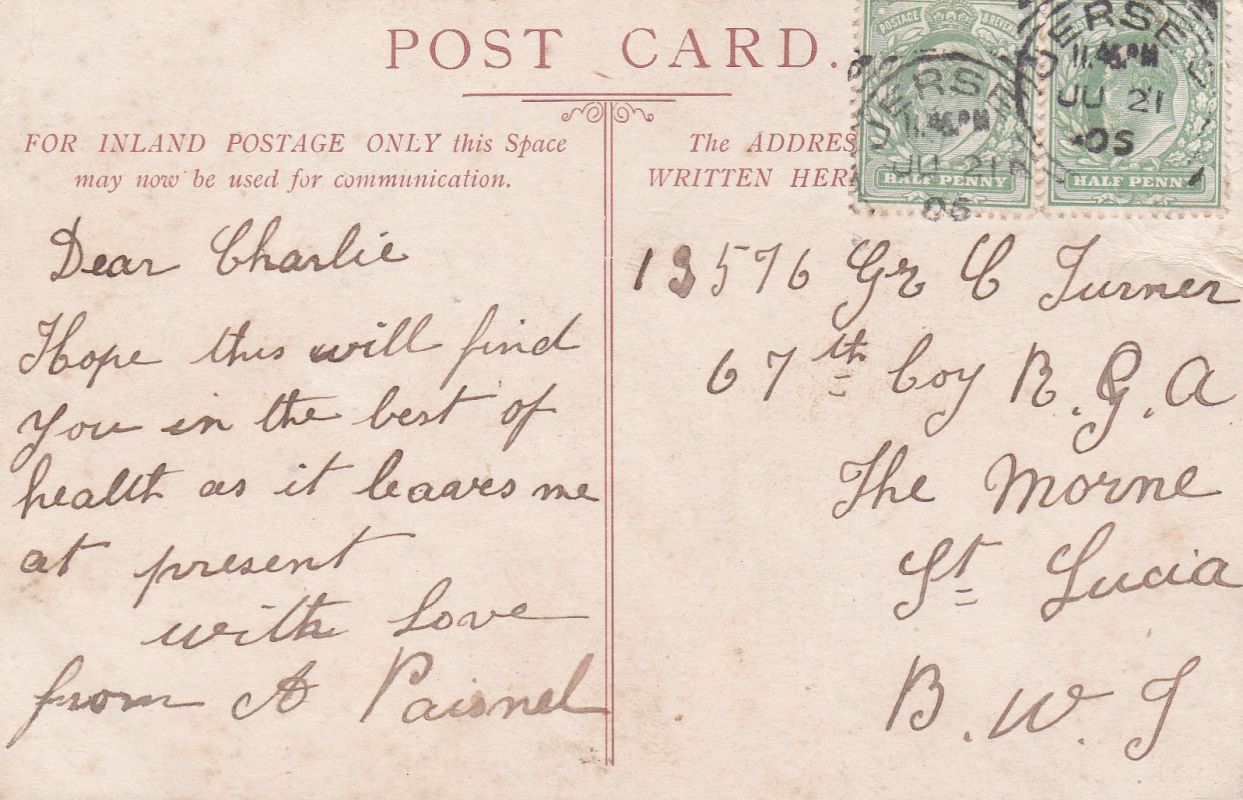 POST CARD.
POSTAGE & REVENUE
JERSEY
11.45PM
JU 21
05
HALF PENNY
JERSEY
11.45PM
JU 21
05
HALF PENNY
FOR INLAND POSTAGE ONLY this Space
may now be used for communication.
The ADDRES
WRITTEN HER
Dear Charlie
Hope this will find
you in the best of
health as it leaves me
at present
with Love
from A Paisnel
13576 Gr C Turner
67th Coy R.G.A
The Morne
St Lucia
B.W.I